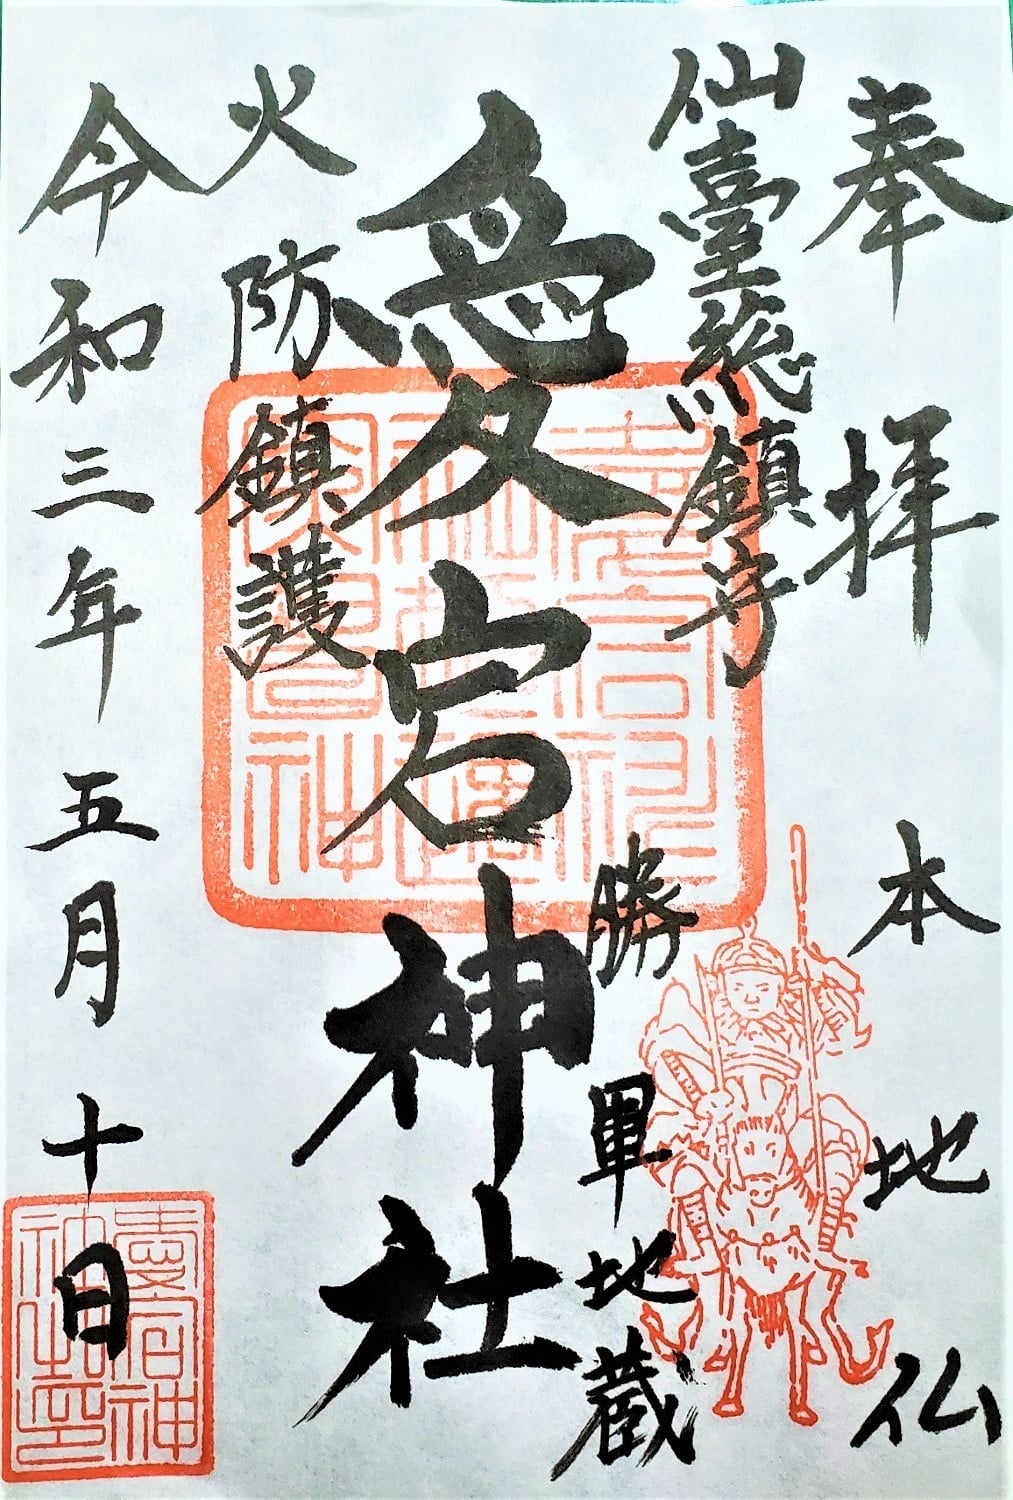 奉拝
本地仏
仙臺総鎮守
勝軍地蔵
愛宕神社
火防鎮護
令和三年五月十日